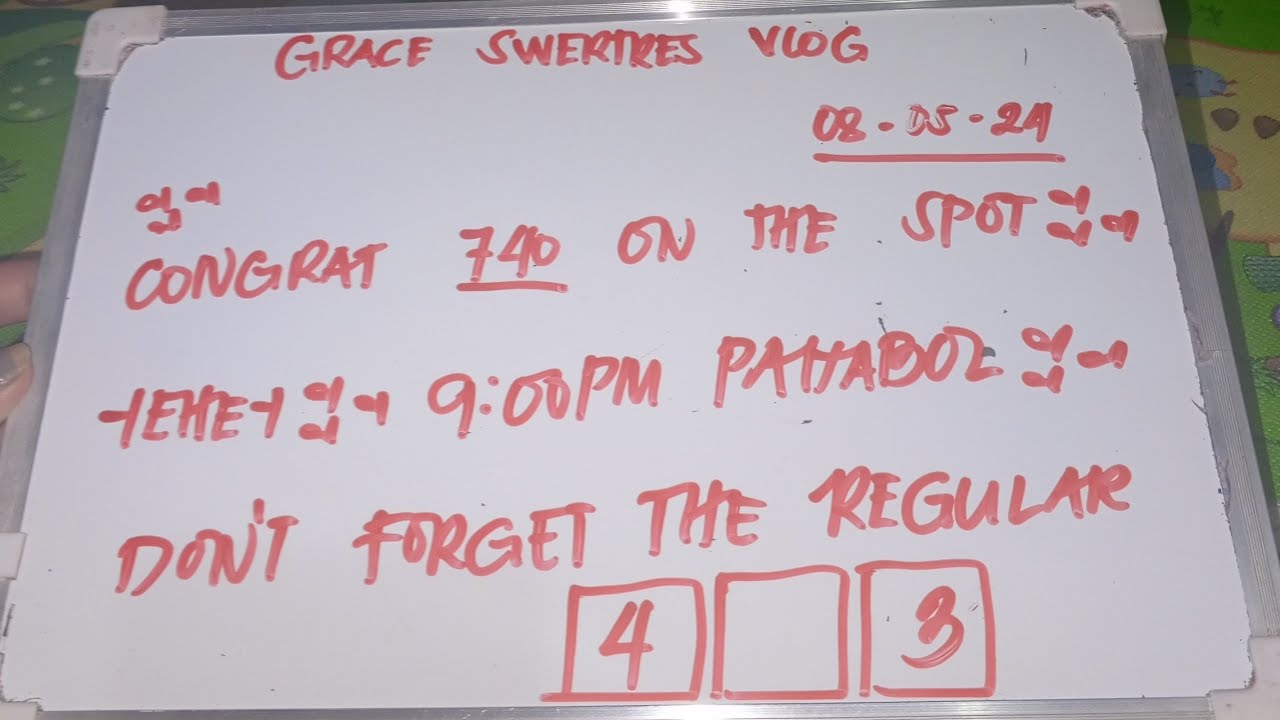 GRACE SWERTRES VLOG
08-05-24
CONGRAT 740 ON THE SPOT
HEHEH 9:00PM PAHABOL
DON'T FORGET THE REGULAR
4 3